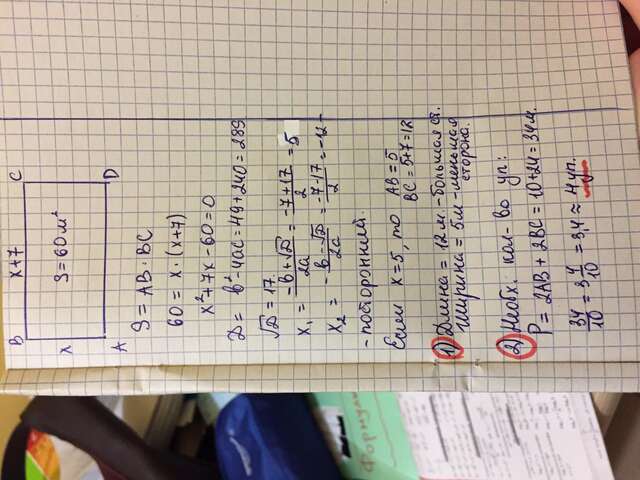 B x+7 C
x S = 60 м²
A D
S = AB · BC
60 = x · (x+7)
x² + 7x - 60 = 0
D = b² - 4ac = 49 + 240 = 289
√D = 17.
x₁ = -b + √D / 2a = -7 + 17 / 2 = 5
x₂ = - b - √D / 2a = -7 - 17 / 2 = -12 -
- посторонний.
Если x = 5, то AB = 5
BC = 5+7 = 12
1) Длина = 12 м. - большая ст.
Ширина = 5 м - меньшая
сторона.
2) Необх. кол-во уп:
P = 2AB + 2BC = 10 + 24 = 34 м.
34/10 = 3 4/10 = 3,4 ≈ 4 уп.
Формулы